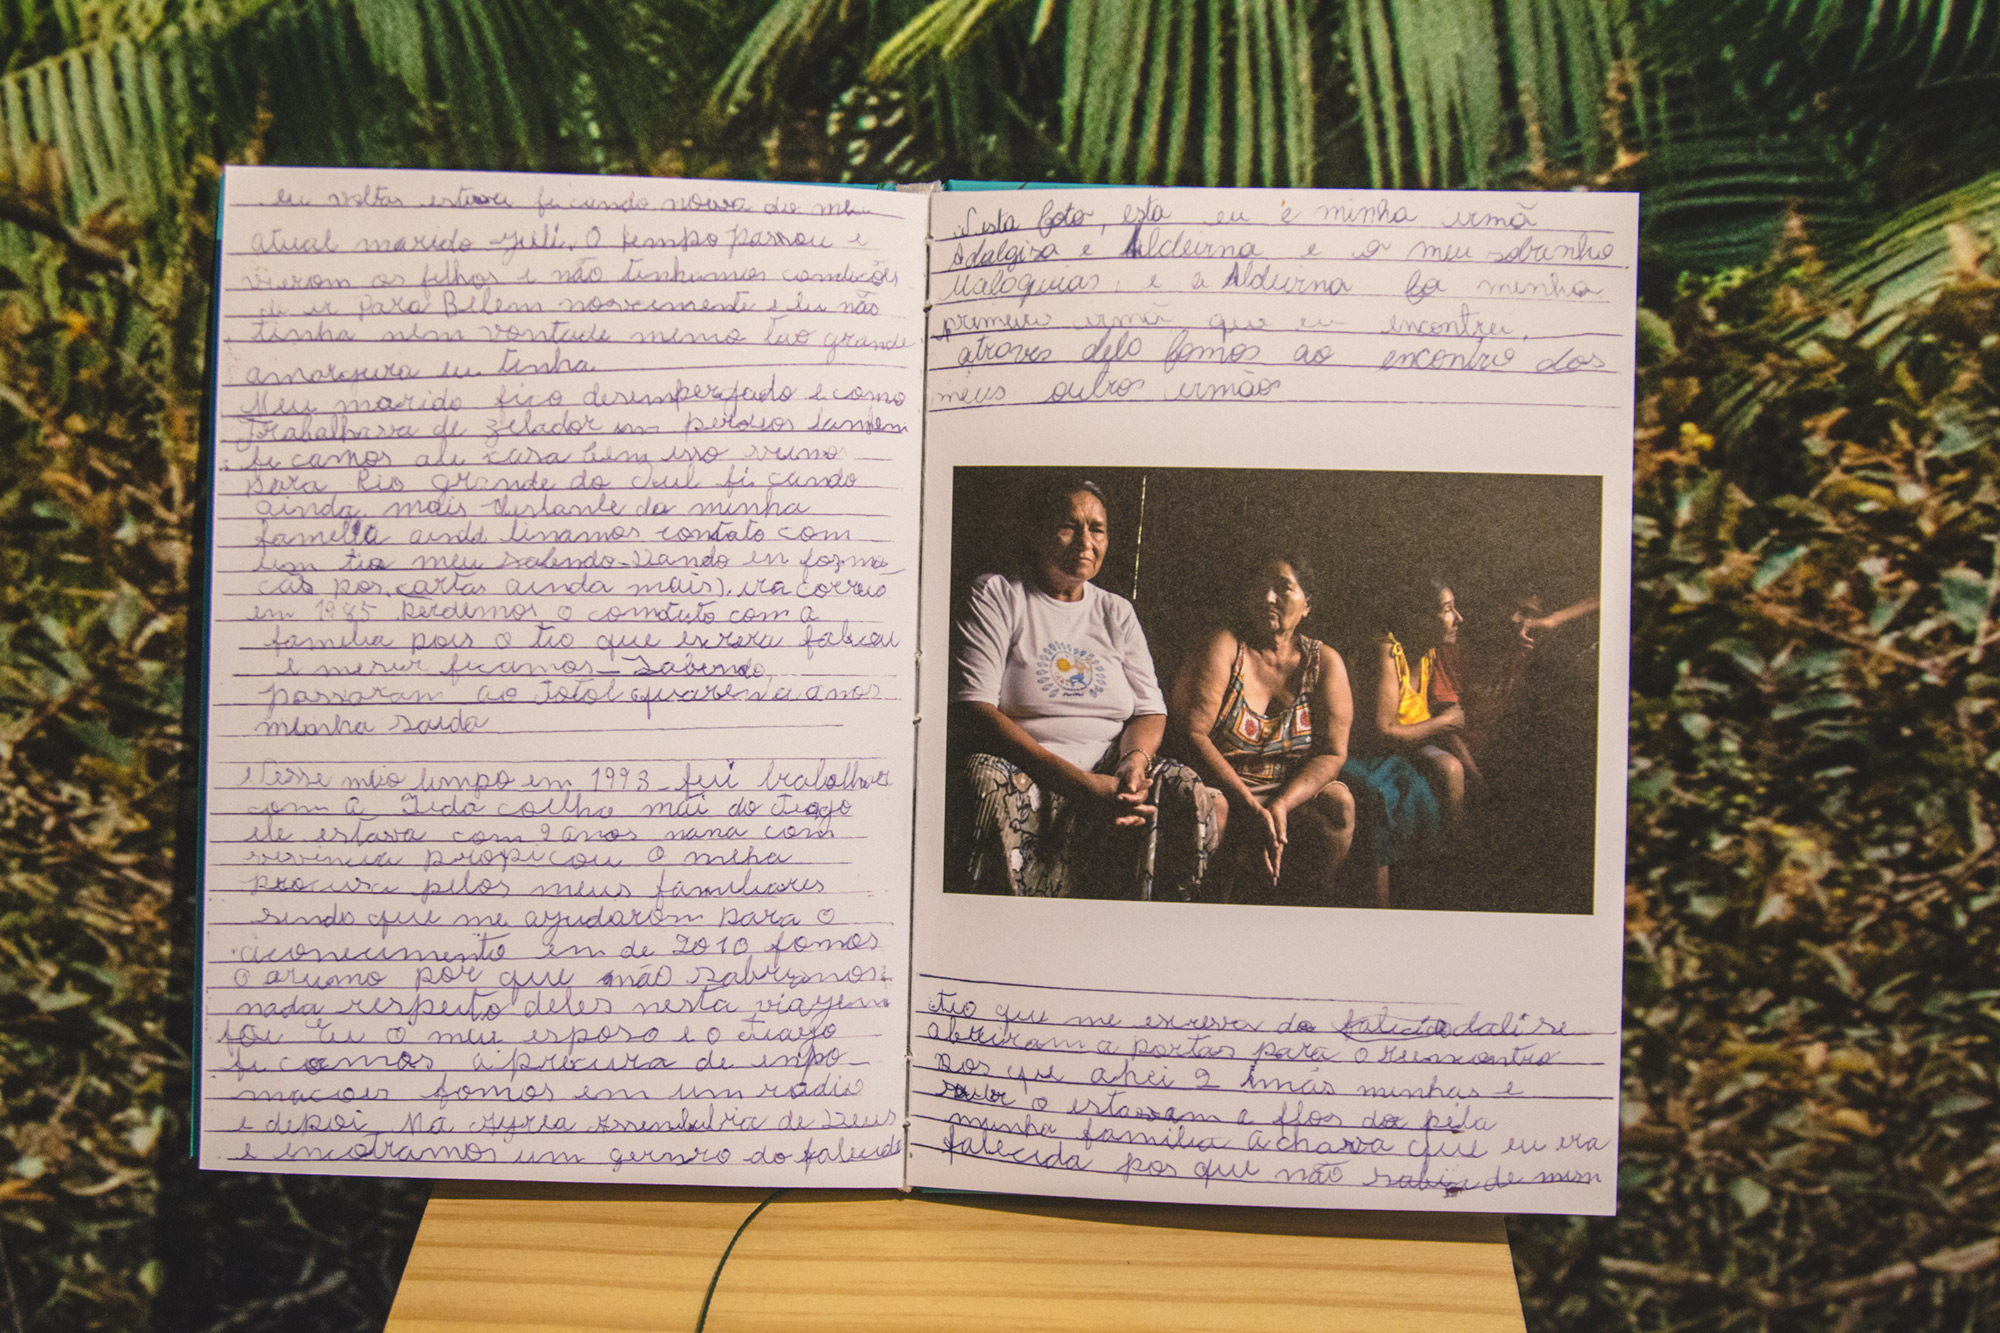 eu voltas estava ficando noiva do meu
atual marido Juli. O tempo passou e
vierom os filhos e não tinhamos condições
de ir para Belem novamente e eu não
tinha nem vontade memo tão grande
amargura eu tinha
Meu marido fico desempergado e como
Trabalhava de zelador em perdios tambem
ficamos
para Rio grande do Sul ficando
ainda mais distante da minha
familia ainda tinamos contato com
um tio meu
por cartas ainda mais era correio
em 1985 perdemos o contato com a
familia pois o tio que
e ficamos
passaram ao total quarenta anos
minha saida
Nesse meio tempo em 1993 fui trabalhar
com a Ieda coelho mãi do tiago
ele estava com 9 anos nana com
vivencia propicou o
procura pelos meus familiares
sendo que me ajudarom para o
em de 2010 fomos
o arumo por que não sabiamos
nada respeito deles nesta viagem
foi Eu o meu esposo e o tiago
ficamos a procura de infor
macoes fomos em um radio
e depoi na Assembria de Deus
e encotramos um genro do falecido
Nesta foto, esta eu e minha irmã
Adalgisa e Aldeirna e o meu sobrinho
Malaquias, e a Aldeirna foi minha
primeira irmã que eu encontrei,
atraves dela fomos ao encontro dos
meus outros irmãos
tio que me escreva do falecido dali se
abriram a portas para o reencontro
pos que ahei 2 imãs minhas e
o estavam a
minha familia achava que eu era
falecida pos que não sabia de mim